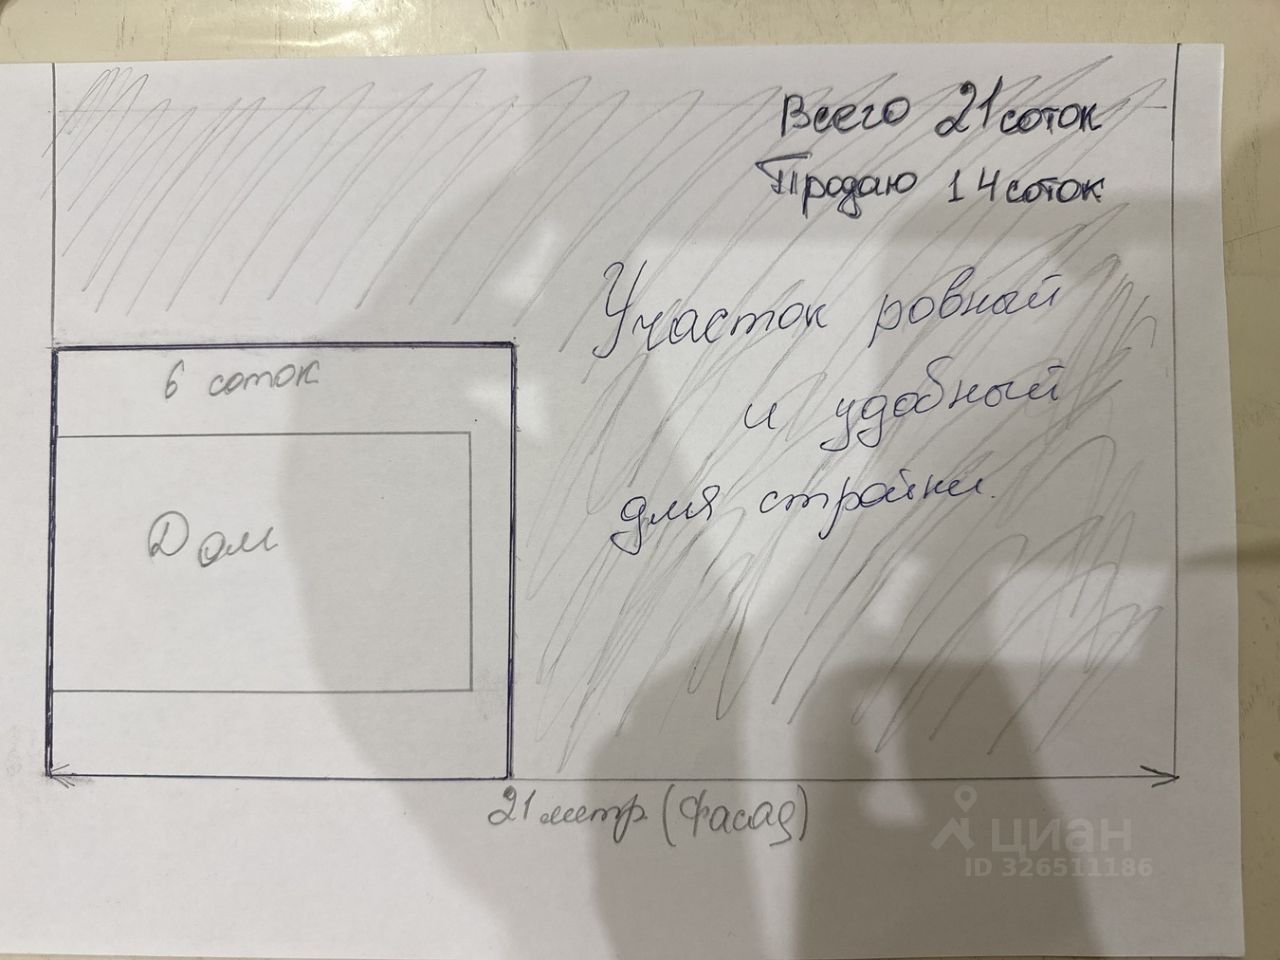 Всего 21 соток
Продаю 14 соток
Участок ровный
и удобный
для стройки.
6 соток
Дом
21 метр (Фасад)
циан
ID 326511186